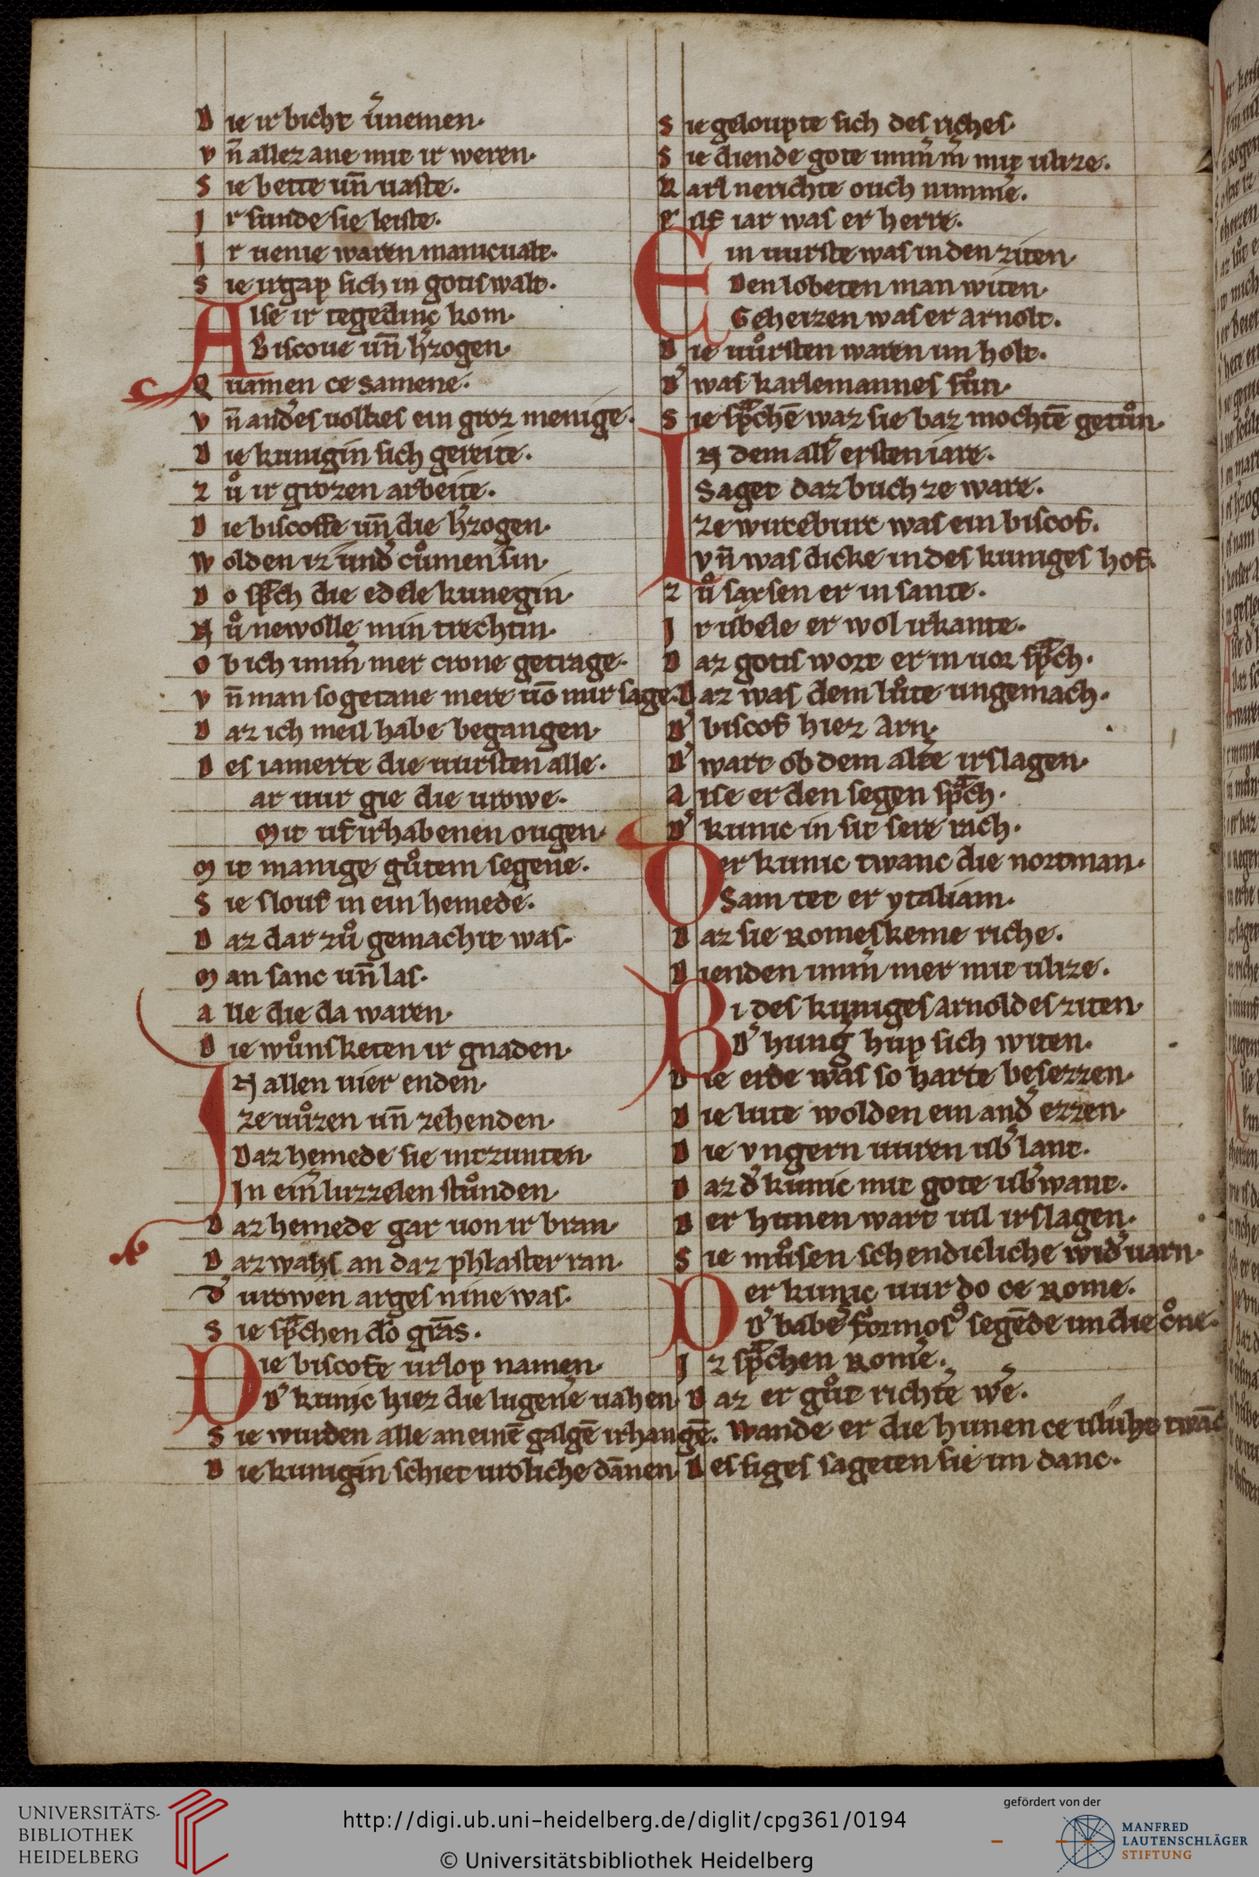 D ie ir bicht v̄nemen·
v n̄ allez ane mit ir weren·
S ie bette un̄ uaste·
J r sunde sie leiste·
J r uenie waren manicualt·
S ie irgap sich in gotis walt·
Alse ir tegedinc kom·
Biscoue un̄ h̓zogen·
Q uamen ce samene·
v n̄ and̓es uolkes ein groz menige·
D ie kunigin sich gereite·
z uͦ ir grozen arbeite·
D ie biscoffe un̄ die h̓zogen·
w olden iz und̓ cuͦmen sin·
D o sp̄ch die edele kunegin·
N uͦ newolle min trechtin·
o b ich imm̄ mer crone getrage·
v n̄ man so getane mere uō mir sage·
D az ich meil habe begangen·
D es iamerte die uursten alle·
ar uur gie die urowe·
Mit uf irhabenen ougen·
M it manige guͦtem segene·
S ie slouf in ein hemede·
D az dar zuͦ gemachit was·
M an sanc un̄ las·
a lle die da waren·
D ie wuͦnsketen ir gnaden·
IN allen uier enden·
ze uuͦzen un̄ zehenden·
Daz hemede sie intzunten·
In ein̄ luzzelen stuͦnden·
D az hemede gar uon ir bran·
D az wahs an daz phlaster ran·
D̓ urowen arges nine was·
S ie sp̄chen do gr̄as·
Die biscofe urlop namen·
D̓ kunic hiez die lugen̓e uahen·
S ie wurden alle an einē galgē irhangē·
D ie kunigin schiet uroliche dānen·
S ie geloupte sich des riches·
S ie diende gote imm̄ m̄ mit ulize·
K arl nerichte ouch nimme̓·
e ilf iar was er herre·
Ein uurste was in den ziten·
Den lobeten man witen·
Geheizen was er arnolt·
D ie uuͦrsten waren im holt·
D̓ was karlemannes suͦn·
S ie sp̄chē waz sie baz mochtē getuͦn·
IN dem all̓ ersten iare·
Saget daz buch ze ware·
ze wirceburc was ein biscof·
vn̄ was dicke in des kuniges hof·
z uͦ saxsen er in sante·
J r ubele er wol irkante·
D az gotis wort er in uor sp̄ch·
D az was dem luͦte ungemach·
D̓ biscof hiez Arn·
D̓ wart ob dem altē irslagen·
a lse er den segen sp̄ch·
D̓ kunic in sit sere rach·
Der kunic twanc die nortman·
Sam tet er ytaliam·
D az sie Romeskeme riche·
D ienden imm̄ mer mit ulize·
Bi des kuniges arnoldes ziten·
D̓ hung̓ hup sich witen·
D ie erde was so harte besezzen·
D ie lute wolden ein and̓ ezzen·
D ie vngern uuren ub̓ lant·
D az d̓ kunic mit gote ub̓want·
D er hunen wart uil irslagen·
S ie muͦsen schendicliche wid̓ uarn·
Der kunic uur do ce Rome·
D̓ babes formos segēde im die cͦne·
J z sp̄chen Rome̓·
D az er guͦt richte̓ we̓·
Wande er die hunen ce uluͦhe twāc
D es siges sageten sie im danc·
UNIVERSITÄTS-
BIBLIOTHEK
HEIDELBERG
http://digi.ub.uni-heidelberg.de/diglit/cpg361/0194
© Universitätsbibliothek Heidelberg
gefördert von der
MANFRED
LAUTENSCHLÄGER
STIFTUNG